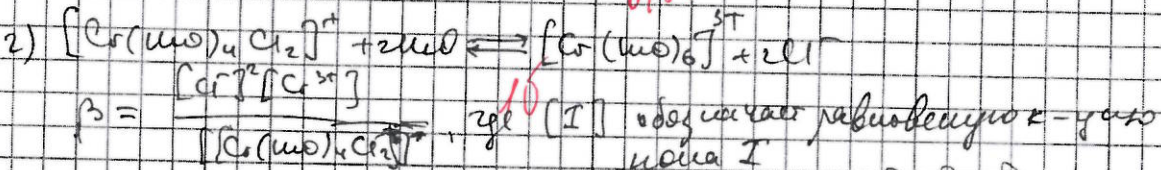 2) [Cr(H₂O)₄Cl₂]⁺ + 2H₂O ⇄ [Cr(H₂O)₆]³⁺ + 2Cl⁻
β = [Cl⁻]²[Cr³⁺] / [[Cr(H₂O)₄Cl₂]⁺], где [I] обозначает равновесную к-цию
1б
иона I